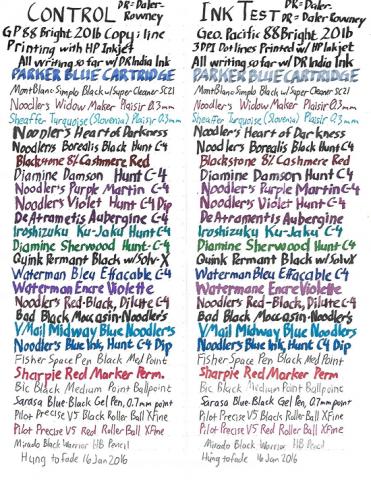 CONTROL DR=Daler-Rowney
GP 88 Bright 20lb Copy: line
Printing with HP Inkjet
All writing so far w/ DR India Ink
PARKER BLUE CARTRIDGE
MontBlanc Simplo Black w/Super Cleaner SC21
Noodler's Widow Maker Plaisir 0.3mm
Sheaffer Turquoise (Slovenia) Plaisir 0.3m
Noodler's Heart of Darkness
Noodler's Borealis Black Hunt C4
Blackstone 8% Cashmere Red
Diamine Damson Hunt C-4
Noodler's Purple Martin C-4
Noodler's Violet Hunt C-4 Dip
DeAtrametis Aubergine C-4
Iroshizuku Ku-Jaku Hunt C4
Diamine Sherwood Hunt C-4
Quink Permant Black w/Solv-X
Waterman Bleu Effacable C-4
Waterman Encre Violette
Noodler's Red-Black, Dilute C-4
Bad Black Moccasin-Noodler's
V-Mail Midway Blue Noodler's
Noodler's Blue Ink, Hunt C4 Dip
Fisher Space Pen Black Med Point
Sharpie Red Marker Perm.
Bic Black Medium Point Ballpoint
Sarasa Blue-Black Gel Pen, 0.7mm point
Pilot Precise V5 Black Roller Ball XFine
Pilot Precise V5 Red Roller Ball XFine
Mirado Black Warrior HB Pencil
Hung to fade 16 Jan 2016
INK TEST DR=Daler-Rowney
Geo. Pacific 88 Bright 20lb
3DPI Dot Lines Printed w/ HP Inkjet
All writing so far w/ DR India Ink
PARKER BLUE CARTRIDGE
MontBlanc Simplo Black w/Super Cleaner SC21
Noodler's Widow Maker Plaisir 0.3mm
Sheaffer Turquoise (Slovenia) Plaisir 0.3m
Noodler's Heart of Darkness
Noodler's Borealis Black Hunt C4
Blackstone 8% Cashmere Red
Diamine Damson Hunt C-4
Noodler's Purple Martin C-4
Noodler's Violet Hunt C-4
DeAtramentis Aubergine
Iroshizuku Ku-Jaku C4
Diamine Sherwood Hunt C-4
Quink Permant Black w/SolvX
Waterman Bleu Effacable C4
Watermane Encre Violette
Noodler's Red-Black, Dilute C4
Bad Black Moccasin Noodler's
V/Mail Midway Blue Noodler's
Noodler's Blue Ink, Hunt C4
Fisher Space Pen Black Med Point
Sharpie Red Marker Perm
Bic Black Medium Point Ballpoint
Sarasa Blue-Black Gel Pen, 0.7mm point
Pilot Precise V5 Black Roller Ball XFine
Pilot Precise V5 Red Roller Ball XFine
Mirado Black Warrior HB Pencil
Hung to fade 16 Jan 2016